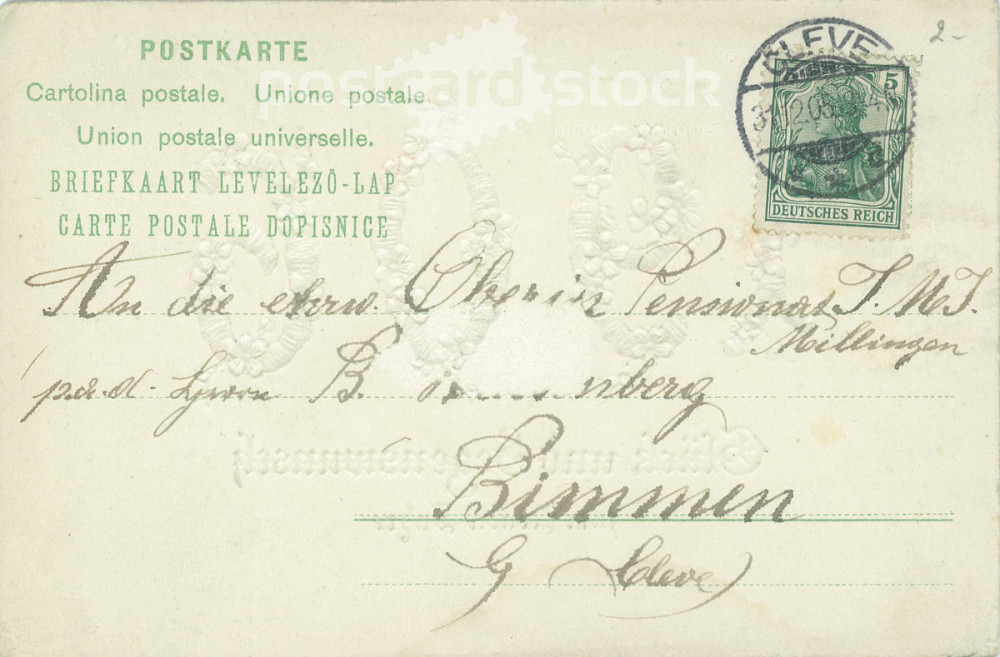 POSTKARTE
Cartolina postale. Unione postale
Union postale universelle.
BRIEFKAART LEVELEZŐ-LAP
CARTE POSTALE DOPISNICE
postcard stock
2-
CLEVE
5
DEUTSCHES REICH
An die ehrw. Oberin Pensionat J. M. J.
Millingen
p. a. d. Herrn B.
Bimmen
Cleve
Glück und Segenswunsch